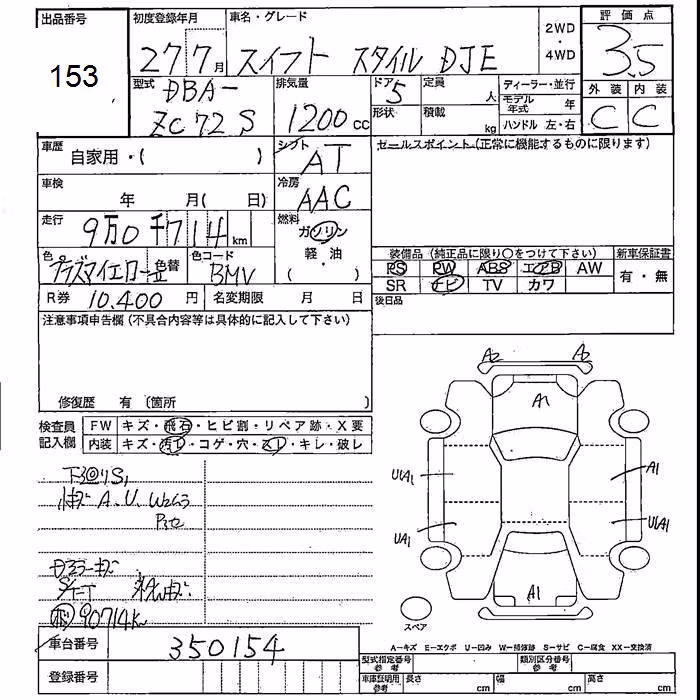 出品番号 初度登録年月 車名・グレード 2WD ・ 4WD 評価点
153
27 7月 スイフト スタイル DJE 3.5
型式 DBA- ZC72S
排気量 1200cc
ドア 5 形状
定員 人
積載 kg
ディーラー・並行
モデル年式 年
ハンドル 左・右
外装 内装
C C
車歴 自家用・( )
シフト AT
セールスポイント(正常に機能するものに限ります)
車検 年 月( 日)
冷房 AAC
走行 9万0千714km
燃料 ガソリン 軽・油 ・( )
色 プラズマイエロー 色替
色コード BMV
装備品(純正品に限り○をつけて下さい) 新車保証書
PS PW ABS エアB AW 有・無
SR ナビ TV カワ
R券 10.400円 名変期限 月 日
後日品
注意事項申告欄(不具合内容等は具体的に記入して下さい)
修復歴 有(箇所 )
検査員記入欄 FW キズ・飛石・ヒビ割・リペア跡・X要
内装 キズ・汚れ・コゲ・穴・スレ・キレ・破レ
A2 A2
A1
UA1 A1
UA1 UA1
A1
スペア
A.U.
90714K
車台番号 350154
登録番号
A-キズ E-エクボ U-凹み W-補修跡 S-サビ C-腐食 XX-交換済
型式指定番号 参考 類別区分番号 参考
車庫証明用 参考 長さ cm 幅 cm 高さ cm